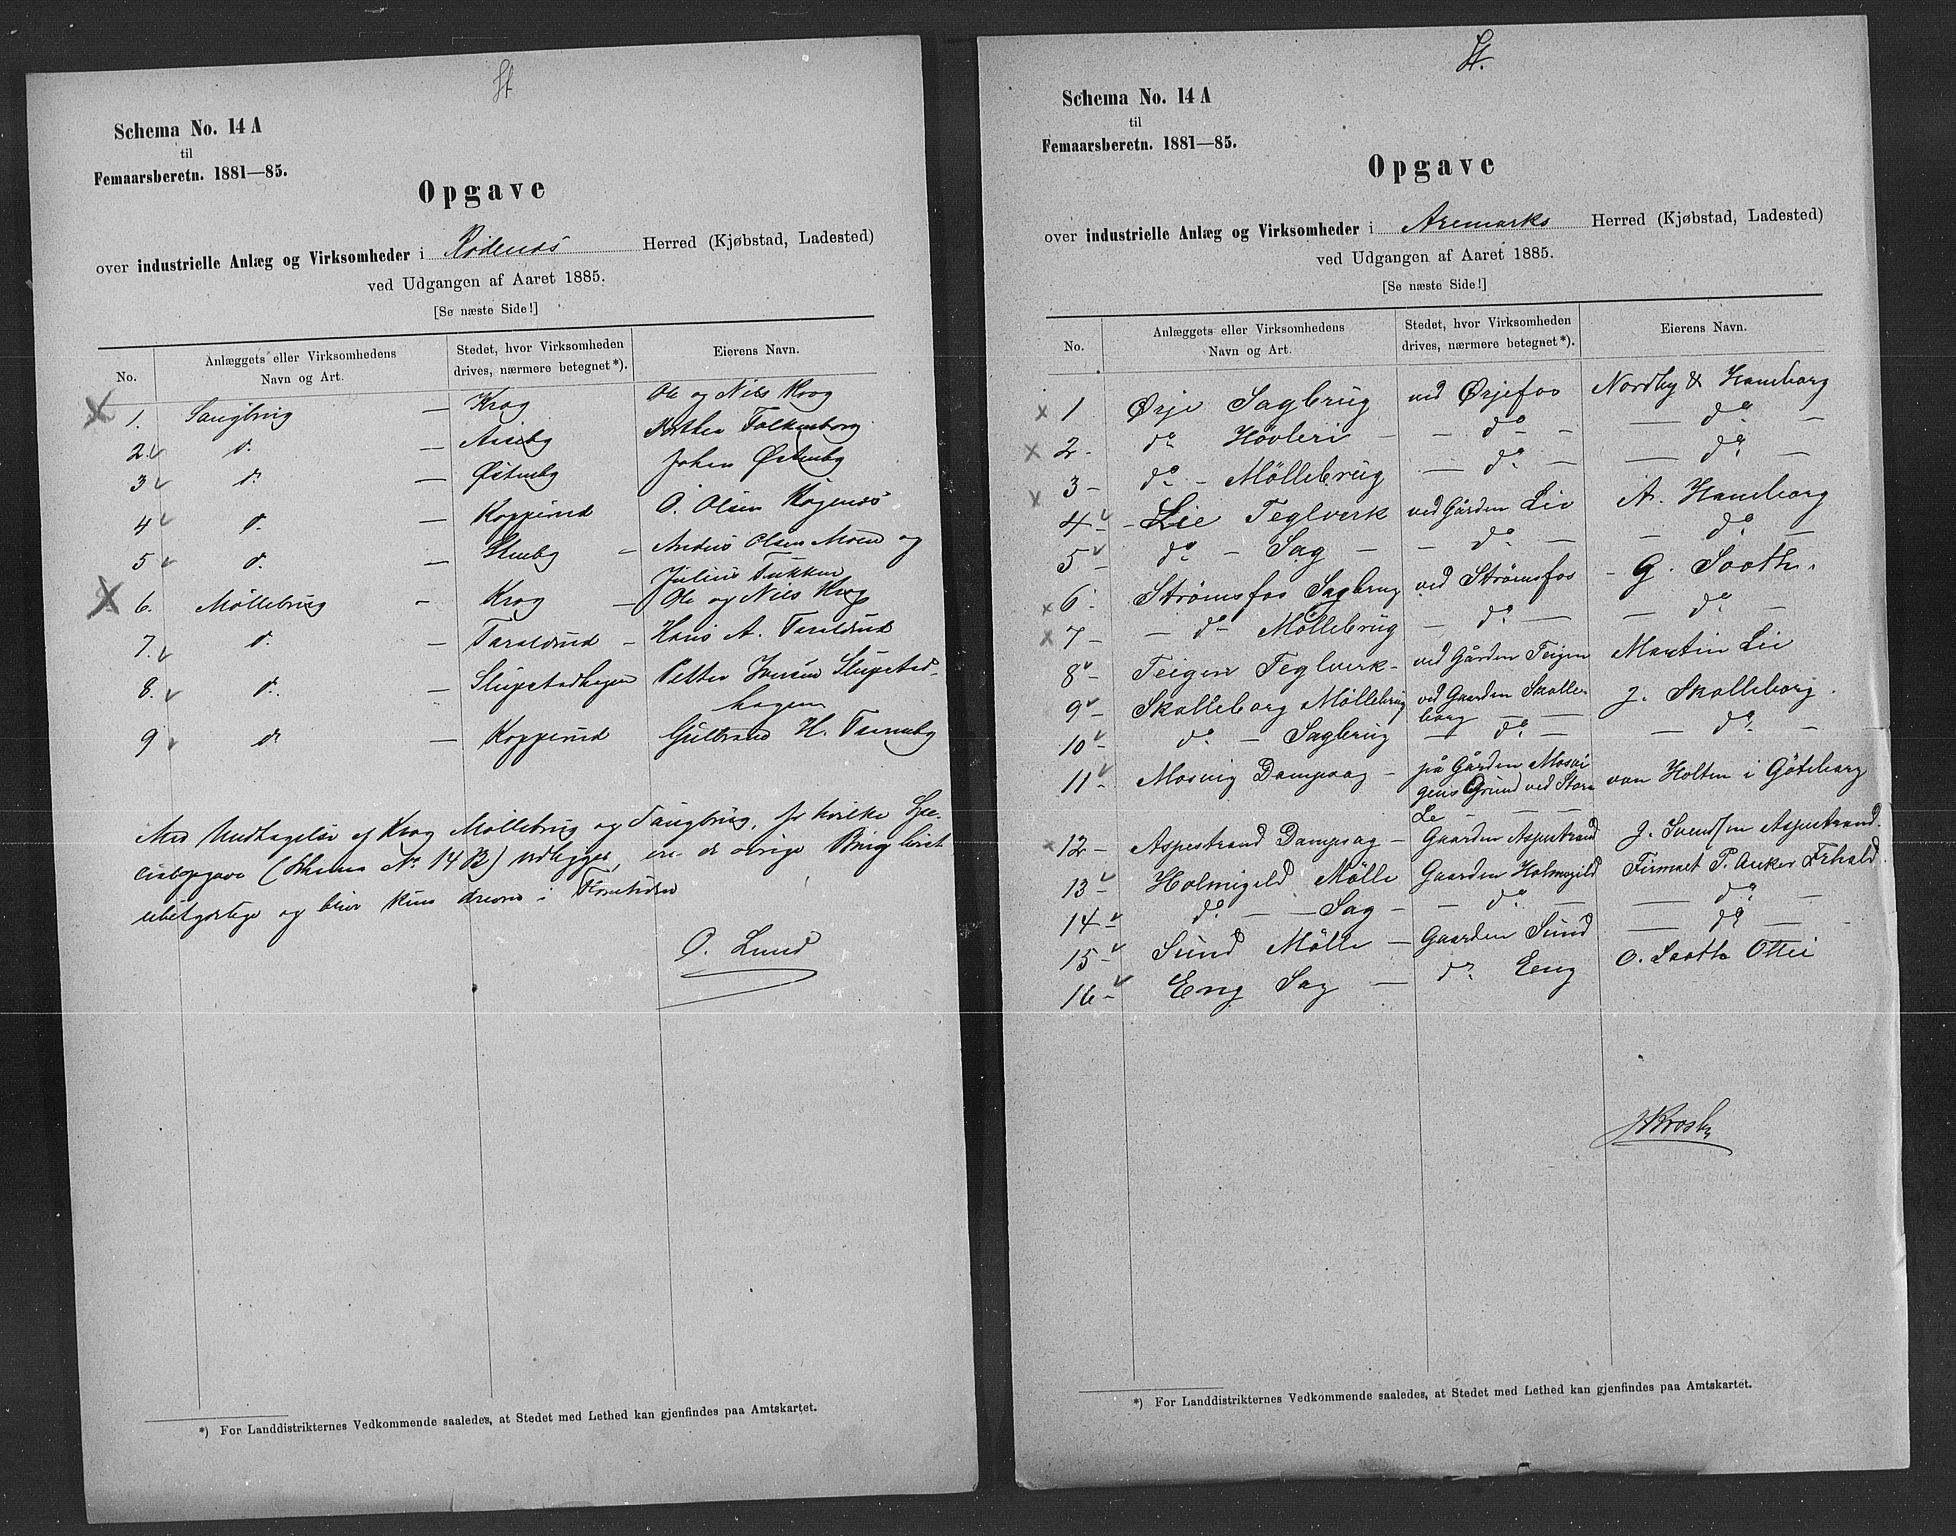 St
Schema No. 14 A
til
Femaarsberetn. 1881—85.
Opgave
over industrielle Anlæg og Virksomheder i Rødenæs Herred (Kjøbstad, Ladested)
ved Udgangen af Aaret 1885.
[Se næste Side!]
No. Anlæggets eller Virksomhedens Navn og Art. Stedet, hvor Virksomheden drives, nærmere betegnet*). Eierens Navn.
1. Saugbrug — Krog Ole og Nils Krog
2. d. — Falkenborg
3 d. — Østenby Johan Østenby
4 d. — Kopperud O. Olsen
5 d. — Stenby — Anders Olsen Moen og
Julius
6. Møllebrug — Krog — Ole og Nils Krog
7. d. — Taraldrud — Hans A. Taraldrud
8. d. — Slupstadhagen Petter Iversen Slupstad-
hagen
9 d. — Kopperud Gulbrand H. Tserneby
Med Undtagelse af Krog Møllebrug og Saugbrug, for hvilke Spe-
cialopgave (Schema No. 14 B) vedligger, ere de øvrige Brug høist
ubetydelige og blive kun drevne i Flomtiden
O. Lund
*) For Landdistrikternes Vedkommende saaledes, at Stedet med Lethed kan gjenfindes paa Amtskartet.
St.
Schema No. 14 A
til
Femaarsberetn. 1881—85.
Opgave
over industrielle Anlæg og Virksomheder i Aremarks Herred (Kjøbstad, Ladested)
ved Udgangen af Aaret 1885.
[Se næste Side!]
No. Anlæggets eller Virksomhedens Navn og Art. Stedet, hvor Virksomheden drives, nærmere betegnet*). Eierens Navn.
1 Ørje Sagbrug ved Ørjefos Nordby & Haneborg
2. do Høvleri — — do — — do —
3 — do — Møllebrug — do — — do
4 — Lie Teglverk ved Gården Lie A. Haneborg
5 — do — Sag — — do — — do —
6 Strømsfos Sagbrug ved Strømsfos — G. Sooth.
7 — — do Møllebrug — do — — do —
8 — Teigen Teglverk — ved Gården Teigen Martin Lie
9 — Skolleborg Møllebrug ved Gaarden Skolle-
borg J. Skolleborg.
10 — do — Sagbrug — do — — do —
11 — Mosvig Dampsag — på Gården Mosvi
gens Grund ved Store
Le — — van Holten i Göteborg
12 — Aspestrand Dampsag — Gaarden Aspestrand J. Svendsen Aspestrand.
13 — Holmegild Mølle Gaarden Holmegild Firmaet P. Anker Frhald.
14 — do — — Sag — — do — — do —
15 — Sund Mølle — Gaarden Sund — do —
16 — Eng Sag — do Eeng O. Sooth Ottei
*) For Landdistrikternes Vedkommende saaledes, at Stedet med Lethed kan gjenfindes paa Amtskartet.